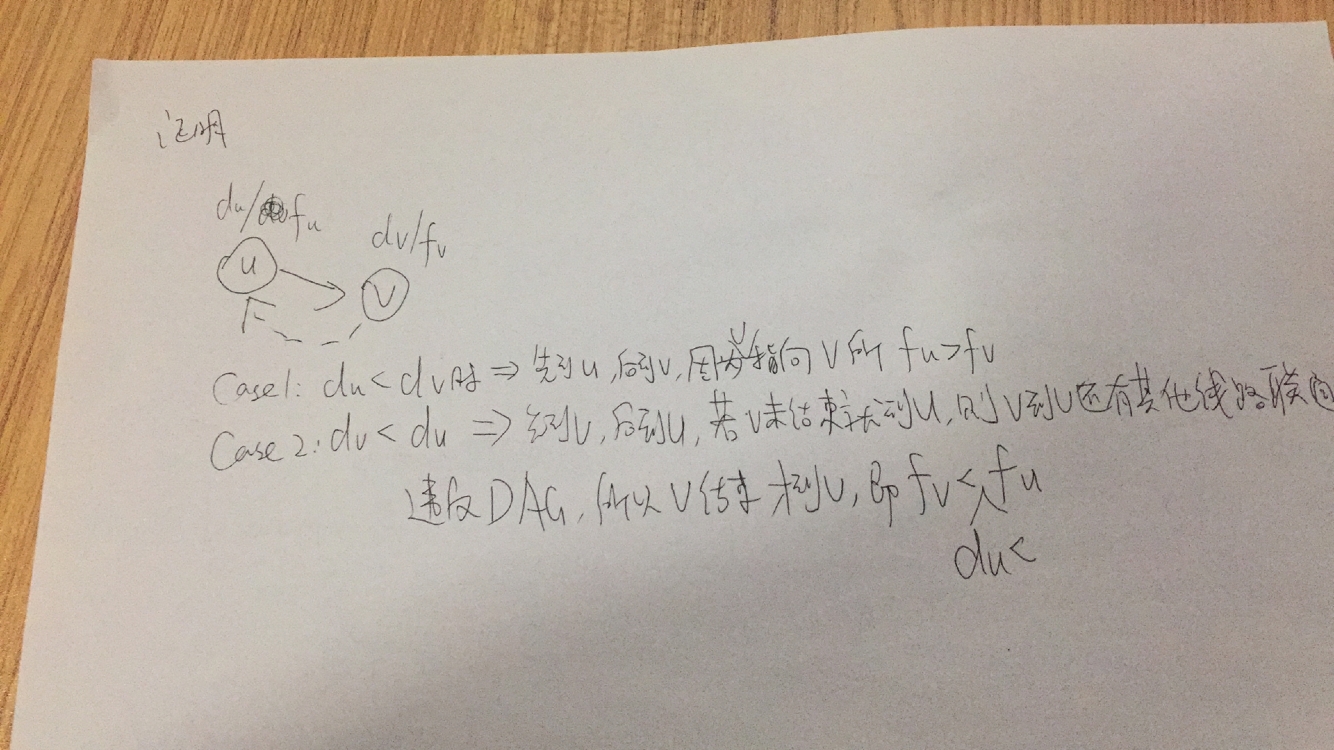 证明
du/fu
dv/fv
u
v
Case1: du < dv时 ⇒ 先到u,后到v,因为u指向v所 fu>fv
Case 2: dv < du ⇒ 先到v,后到u,若v未结束就到u,则v到u还有其他线路联通
违反DAG,所以v结束才到u,即 fv < fu
du <